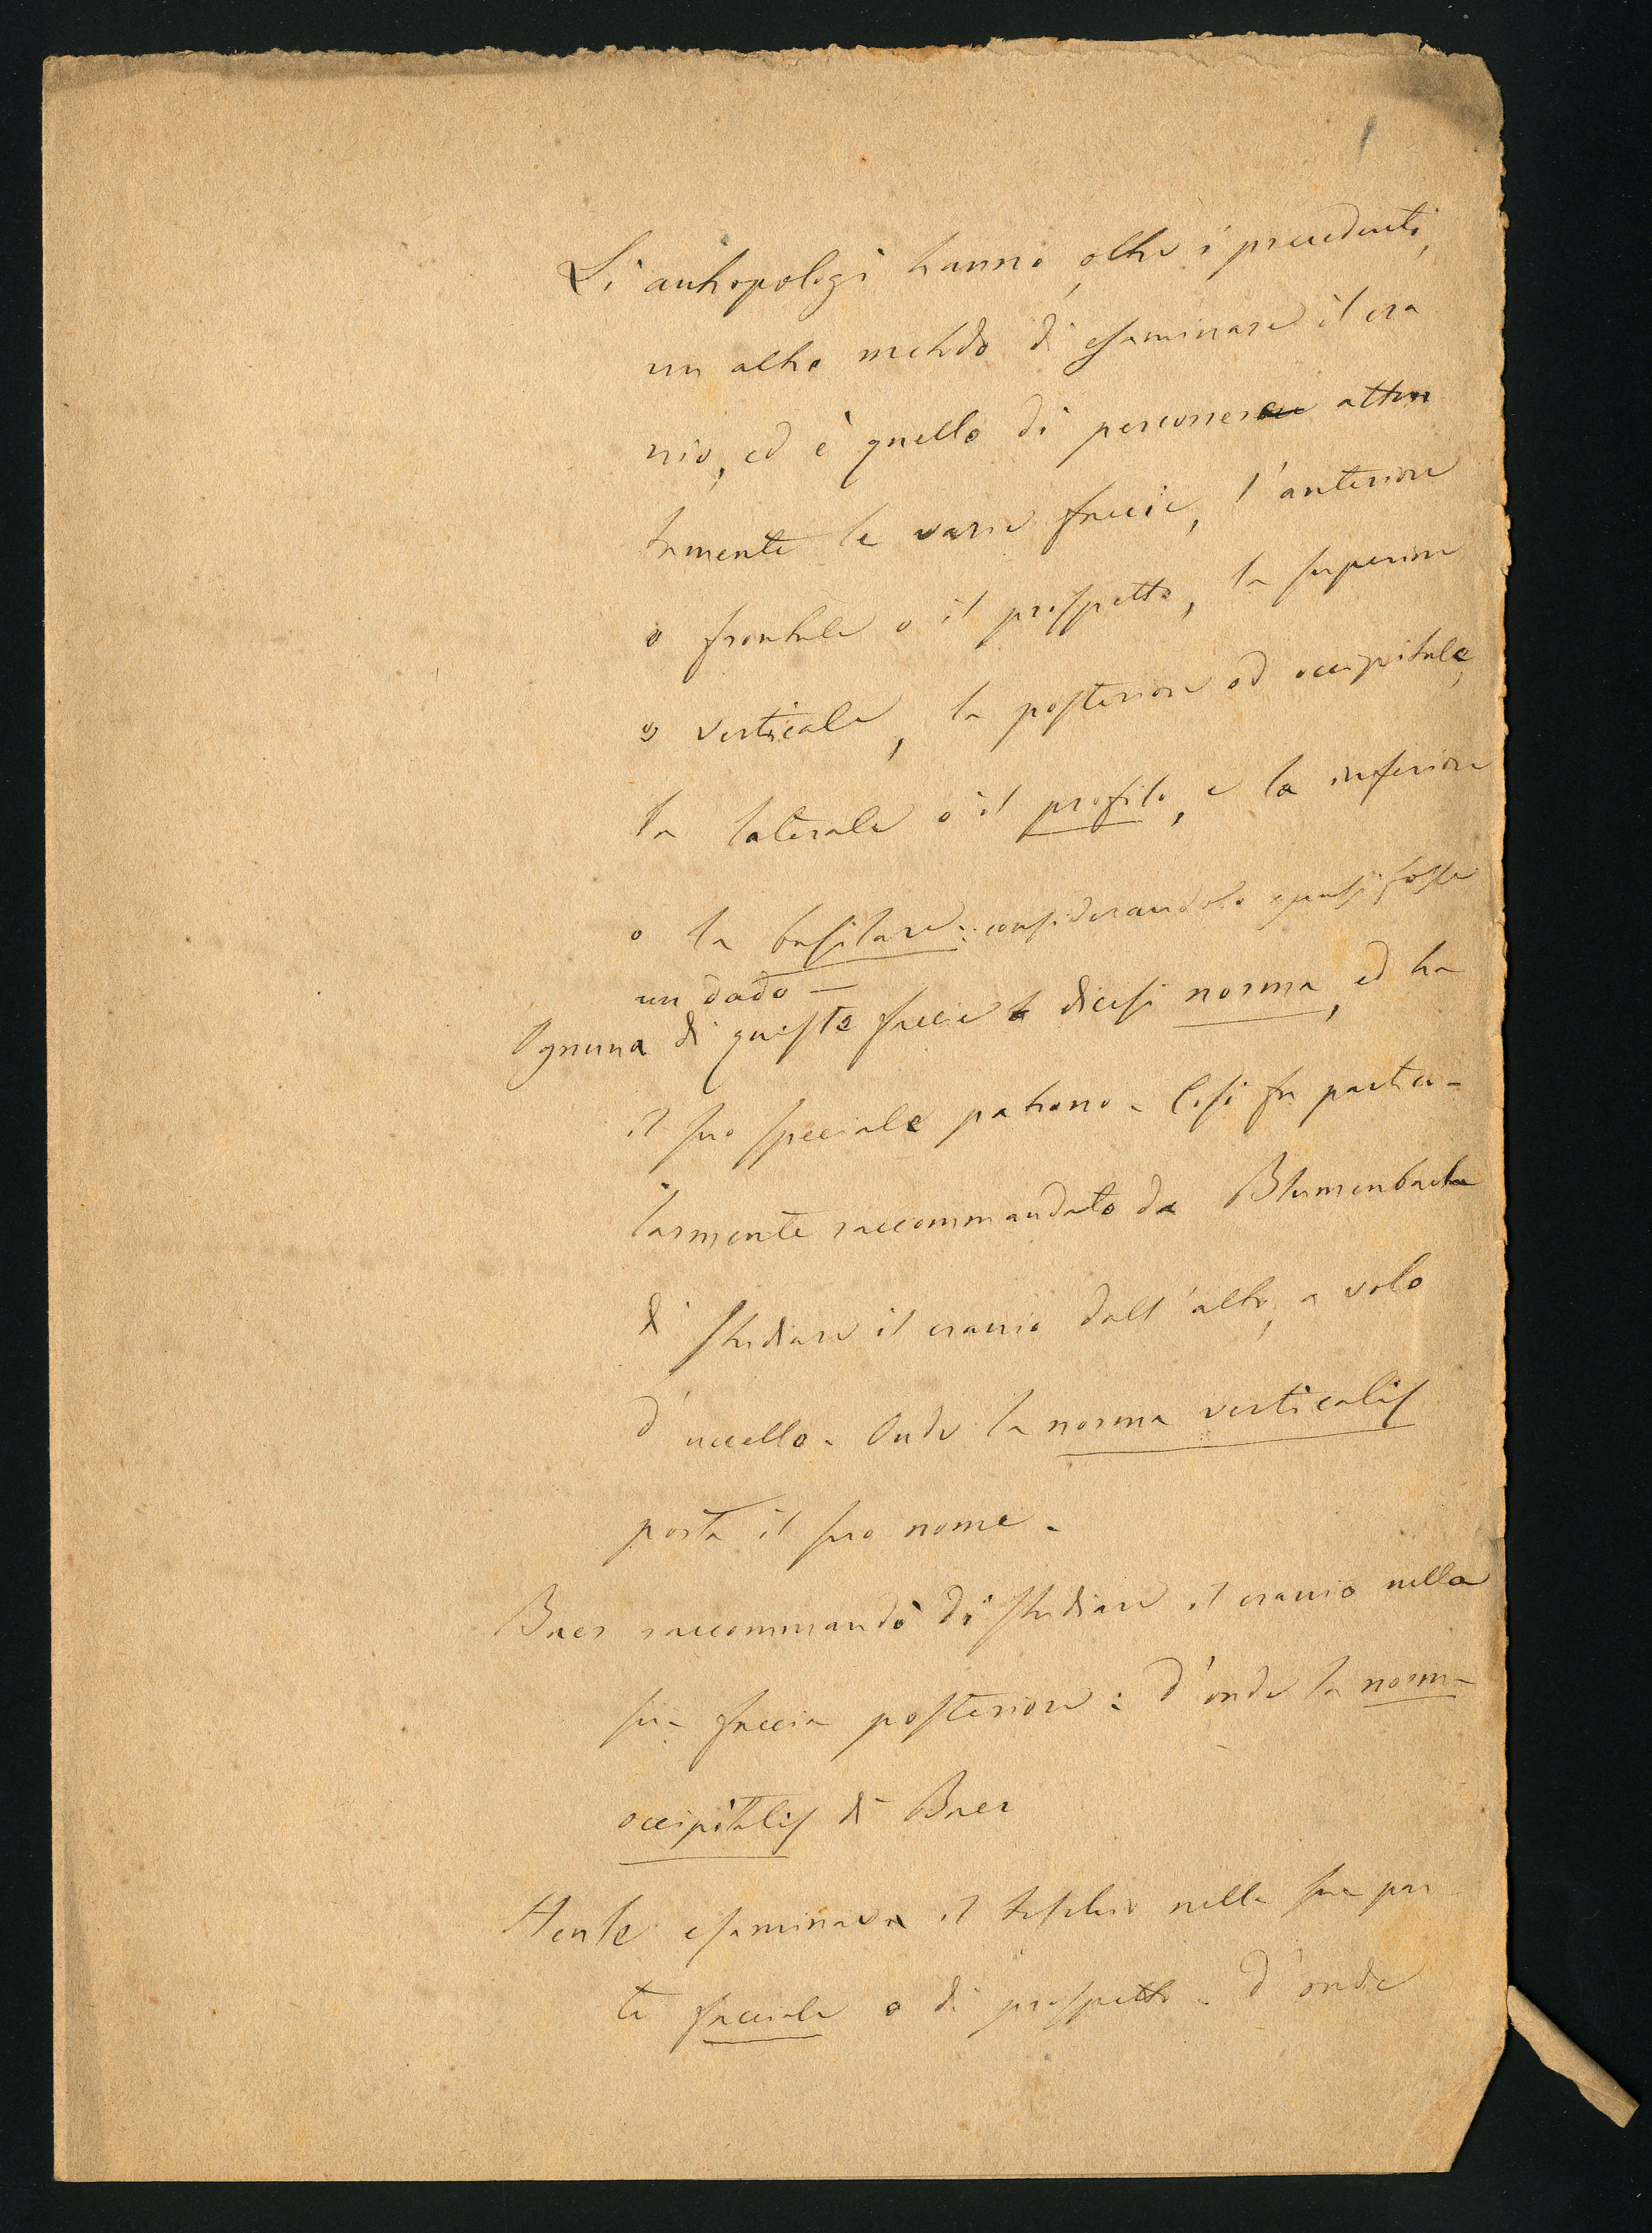 1
Li antropologi hanno, oltre i precedenti,
un altro metodo di esaminare il cra
nio, ed è quello di percorrere atten
tamente le varie faccie, l'anteriore
o frontale o il prospetto, la superiore
o verticale, la posteriore od occipitale,
la laterale o il profilo, e la inferiore
o la basilare: considerandolo quasi fosse
un dado —
Ognuna di queste faccie dicesi norma, ed ha
il suo speciale patrono - Così fu partico-
larmente raccommandato da Blumenbach
di studiare il cranio dall'alto, a volo
d'uccello - Onde la norma verticalis
porta il suo nome -
Baer raccommandò di studiare il cranio nella
sua faccia posteriore: d'onde la norma
occipitalis di Baer
Henle esaminava il teschio nella sua par
te facciale o di prospetto - d'onde